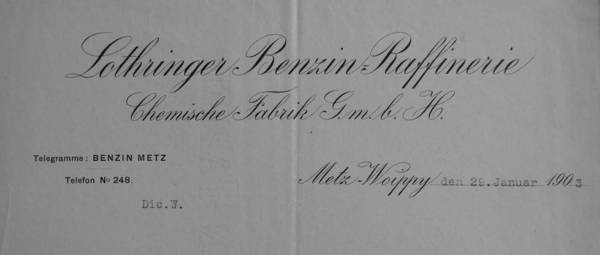 Lothringer Benzin-Raffinerie
Chemische Fabrik G. m. b. H.
Telegramme: BENZIN METZ
Telefon No 248.
Metz-Woippy den 29. Januar 1903
Dic.W.